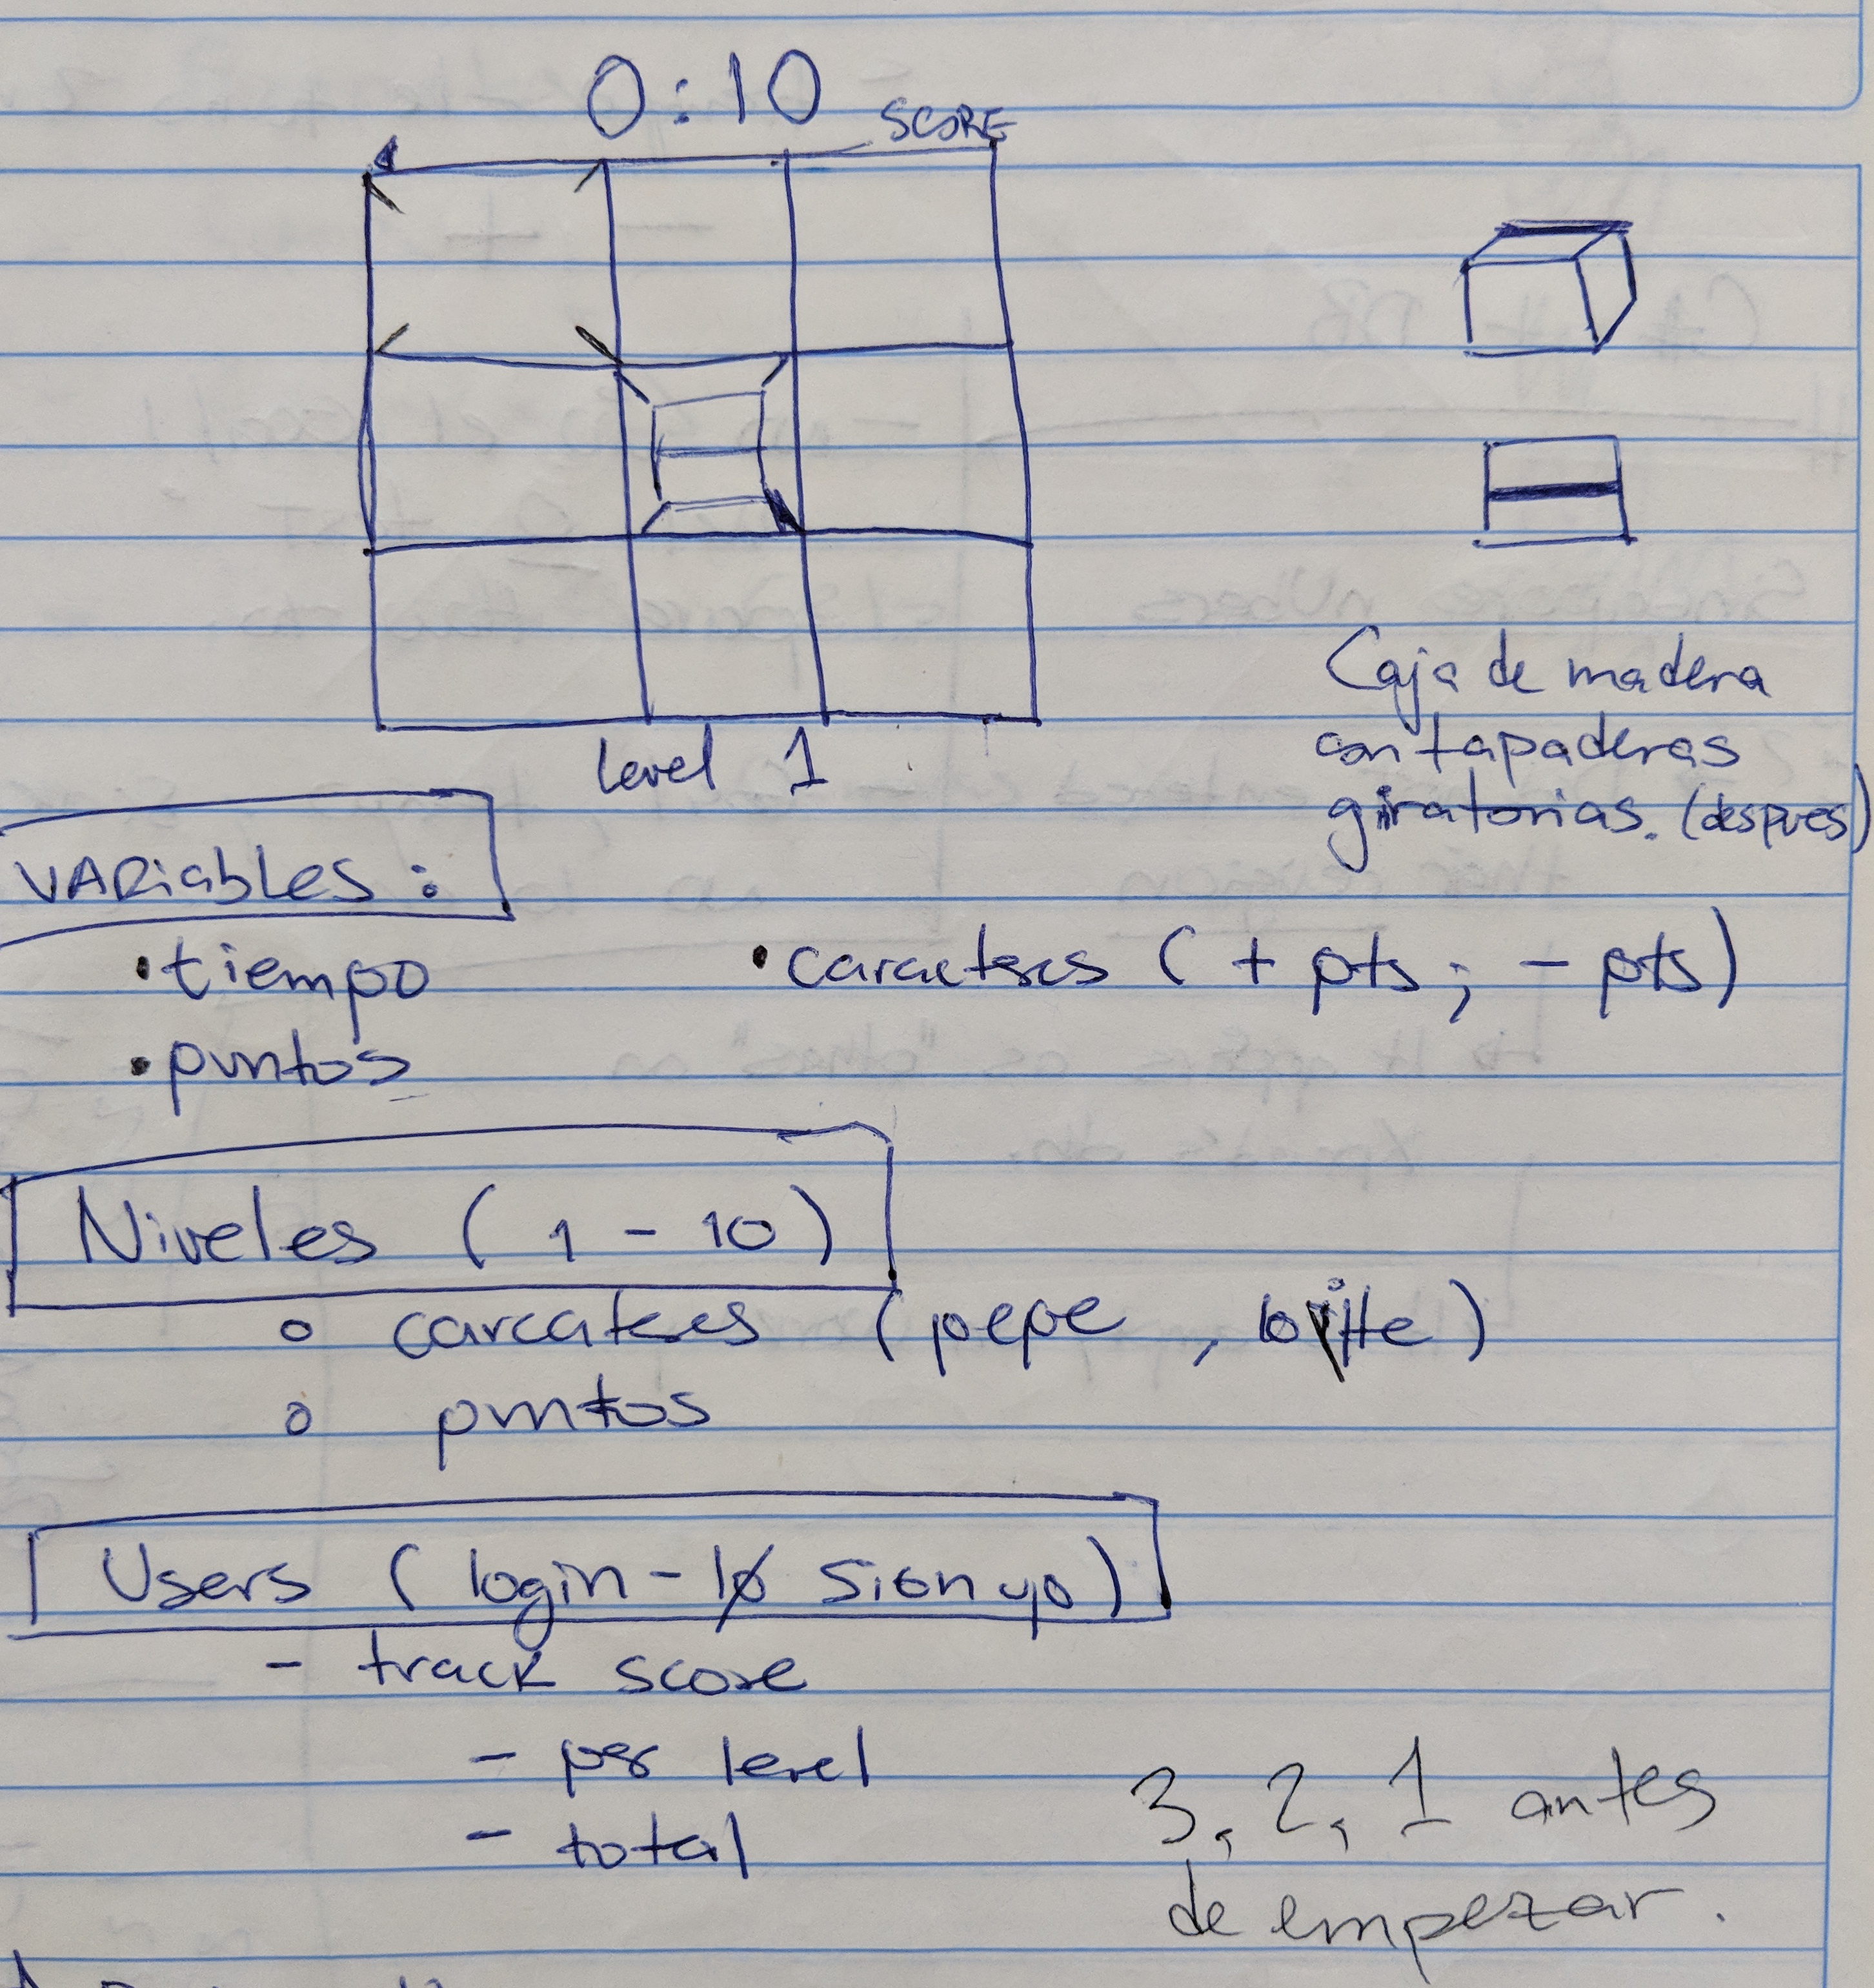 0:10
SCORE
level 1
Caja de madera
con tapaderas
giratorias. (despues)
VARiabLes:
• tiempo
• caracteres (+ pts; - pts)
• puntos
Niveles (1 - 10)
o carcateres (pepe,
o puntos
Users (login - Sign up)
- track score
- per level
- total
3, 2, 1 antes
de empezar.